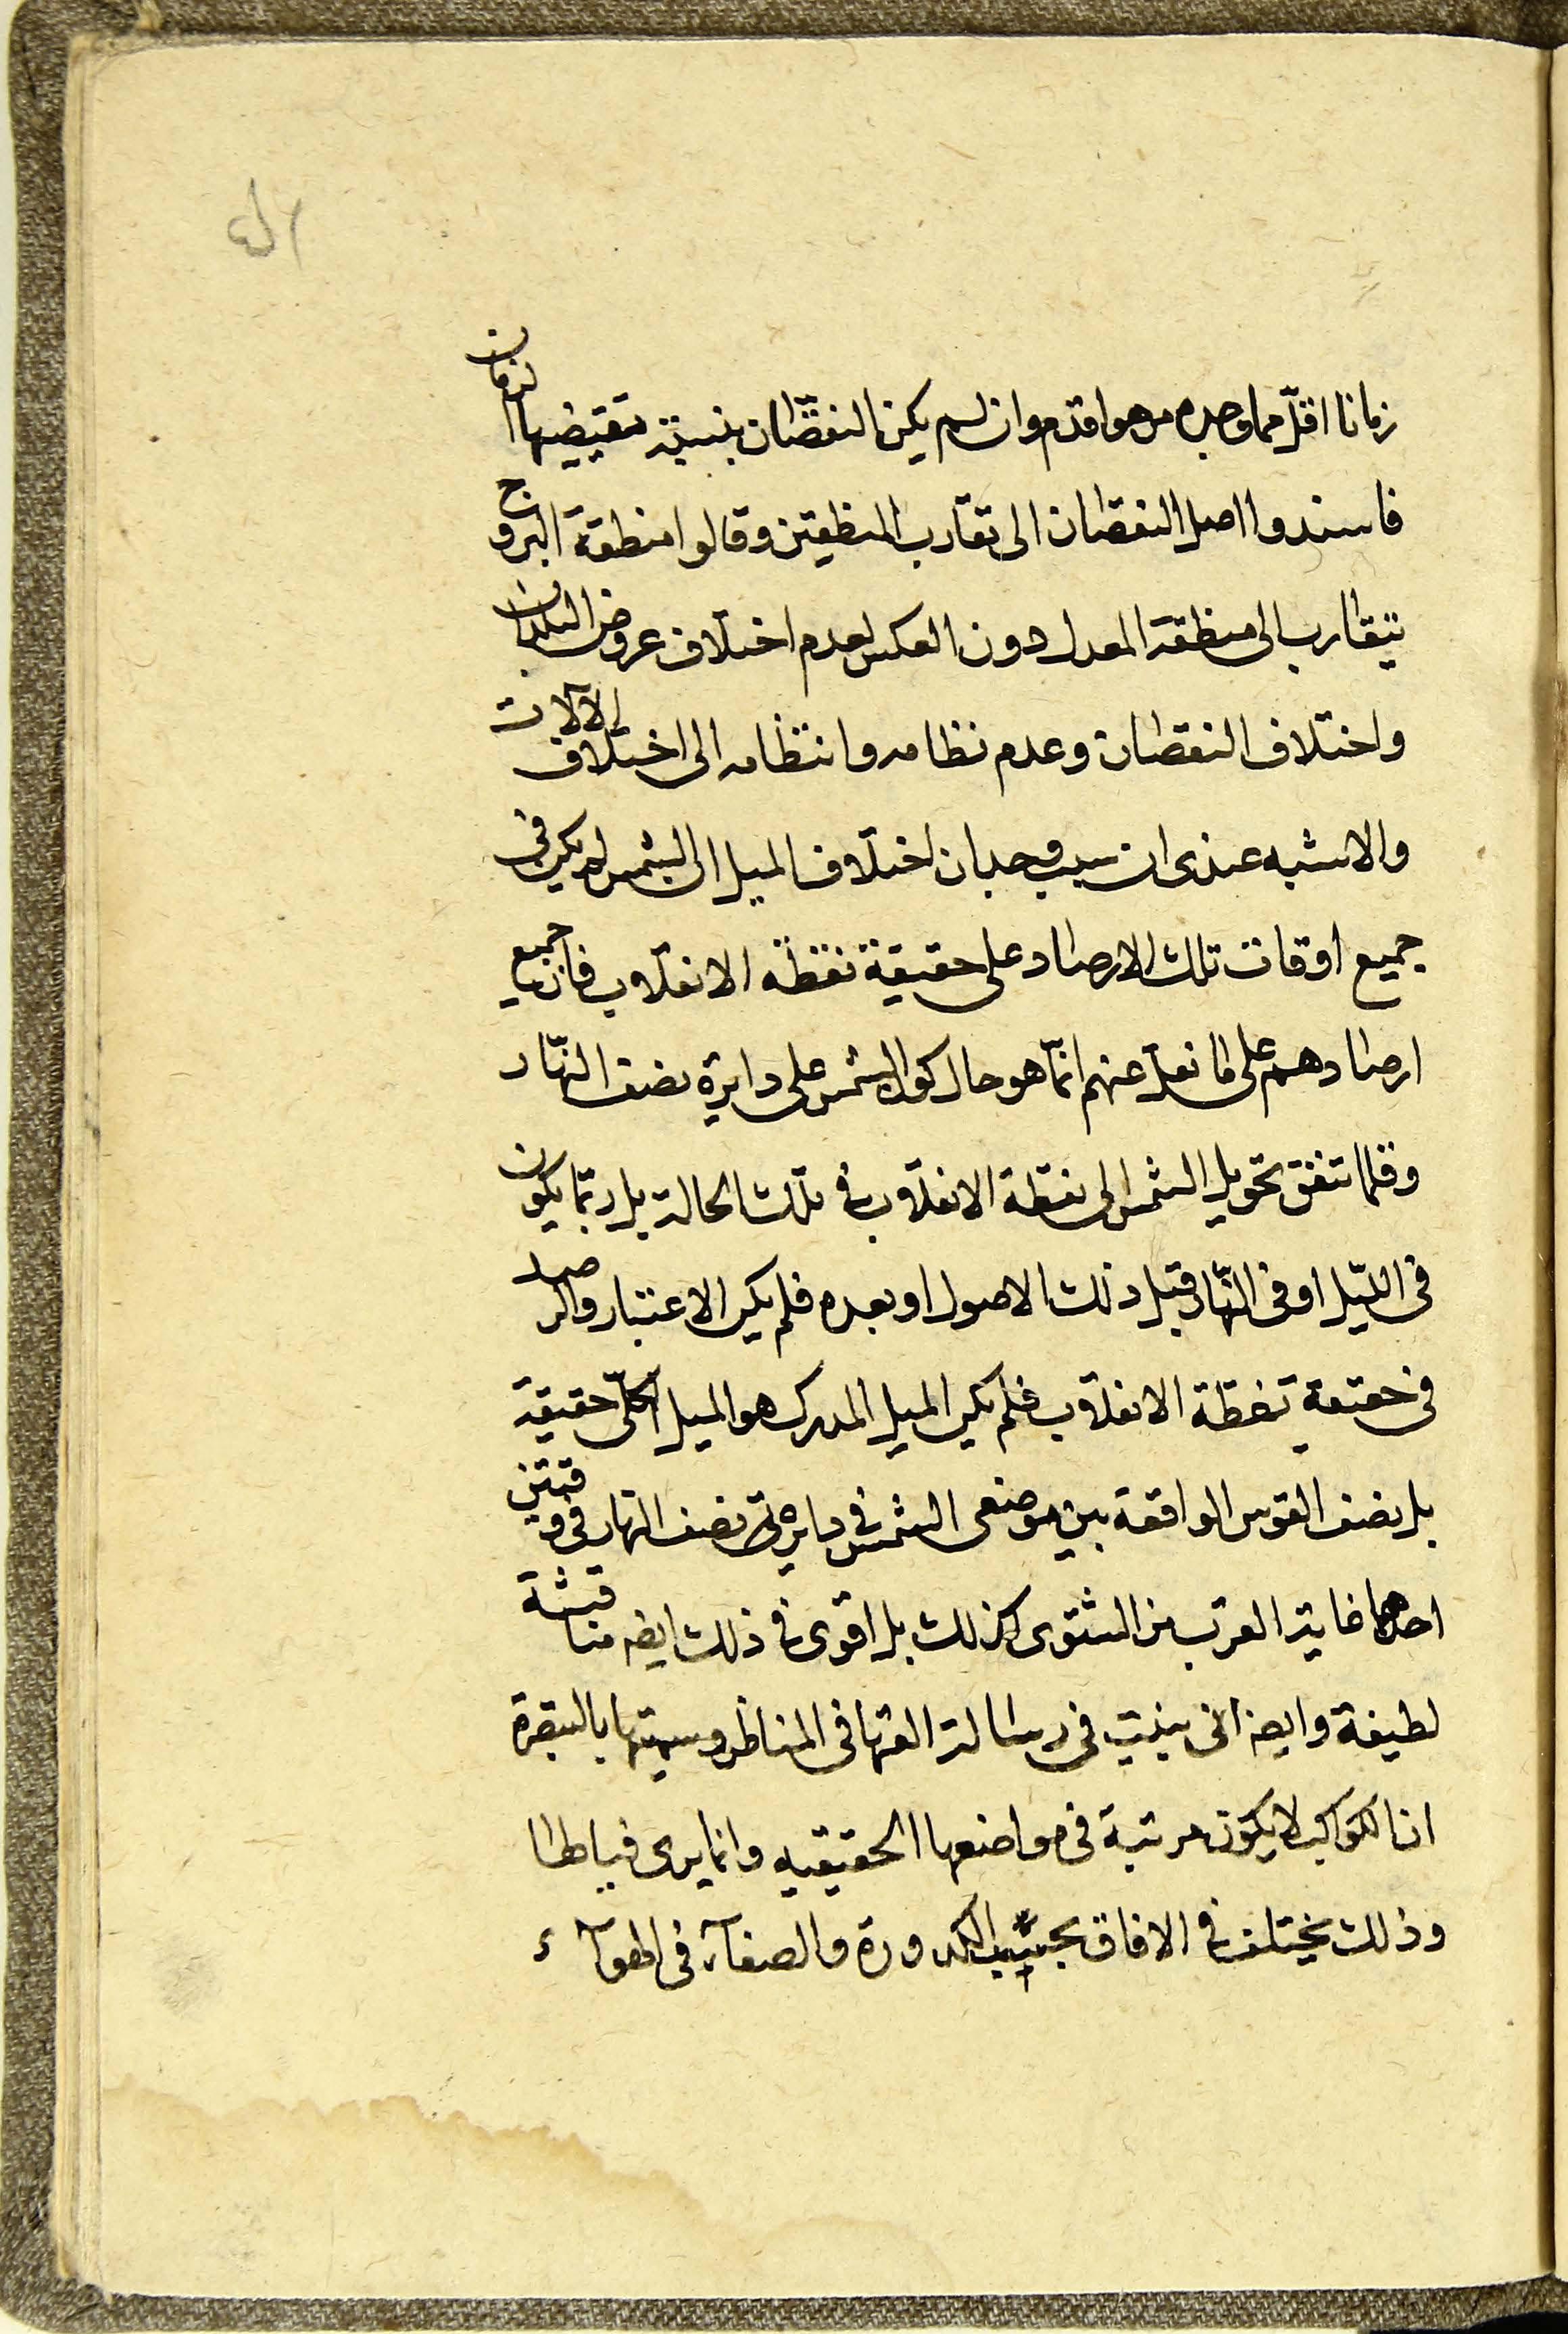 زمانا اقلّ مما وجده من هو اقدم وان لم يكن النقصان بنسبة تقتضيها الزمان
فاسندوا اصل النقصان الى تقارب المنطقتين وقالوا منطقة البروج
يتقارب الى منطقة المعدل دون العكس لعدم اختلاف عروض البلدان
واختلاف النقصان وعدم نظامه وانتظامه الى اختلاف الآلات
والاشبه عندى ان سبب وجدان اختلاف الميل ان الشمس لم يكن فى
جميع اوقات تلك الارصاد على حقيقة نقطة الانقلاب فان جميع
ارصادهم على ما نقل عنهم انّما هو حال كون الشمس على دايرة نصف النهّار
وقلما تتفق تحويل الشمس الى نقطة الانقلاب فى تلك الحالة بل ربّما يكون
فى اللّيل او فى النهّار قبل ذلك الاصول او بعده فلم يكن الاعتبار والرصد
فى حقيقة نقطة الانقلاب فلم يكن الميل المدرك هو الميل الكلّى حقيقة
بل نصف القوس الواقعة بين موضعى الشمس فى دايرة نصف النهار فى وقتين
احدهما غاية القرب من الشتوى كذلك بل اقوى فى ذلك ايضا مناقشة
لطيفة وايضا انى بينت فى رسالة الفتها فى المناظر وسميتها بالتبصرة
ان الكواكب لا يكون مرتبة فى مواضعها الحقيقيه وانما يرى
وذلك يختلف فى الافاق بحسب الكدورة والصفآء فى الهوآء